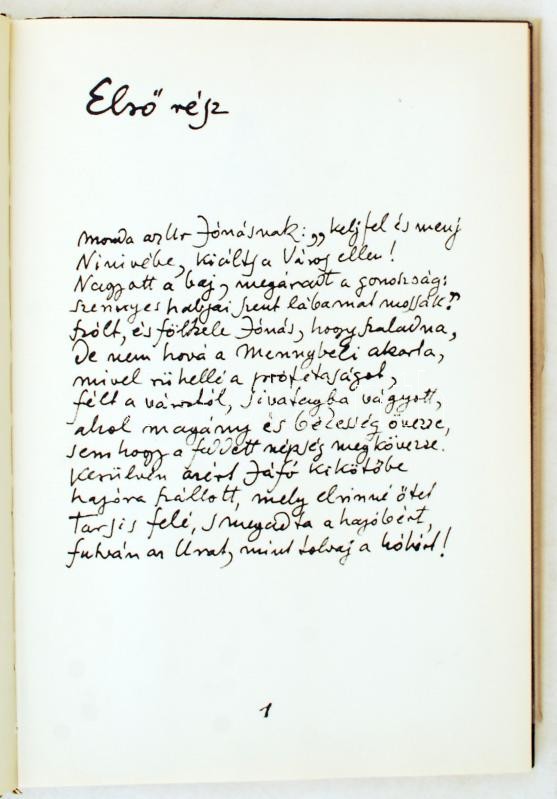 Első rész
Monda az Úr Jónásnak: „kelj fel és menj
Ninivébe, kiálts a Város ellen!
Nagy ott a baj, megáradt a gonoszság:
szennyes habjai szent lábamat mossák."
Szólt, és fölkele Jónás, hogy szaladna,
De nem hová a Mennybéli akarta,
mivel rühellé a prófétaságot,
félt a várostól, sivatagba vágyott,
ahol magány és békesség övezze,
semhogy a feddett népség megkövezze.
Kerülvén azért Jáfó kikötőbe
hajóra szállott, mely elvinné őtet
Tarsis felé, s megadta a hajóbért,
futván az Urat, mint tolvaj a hóhért!
1